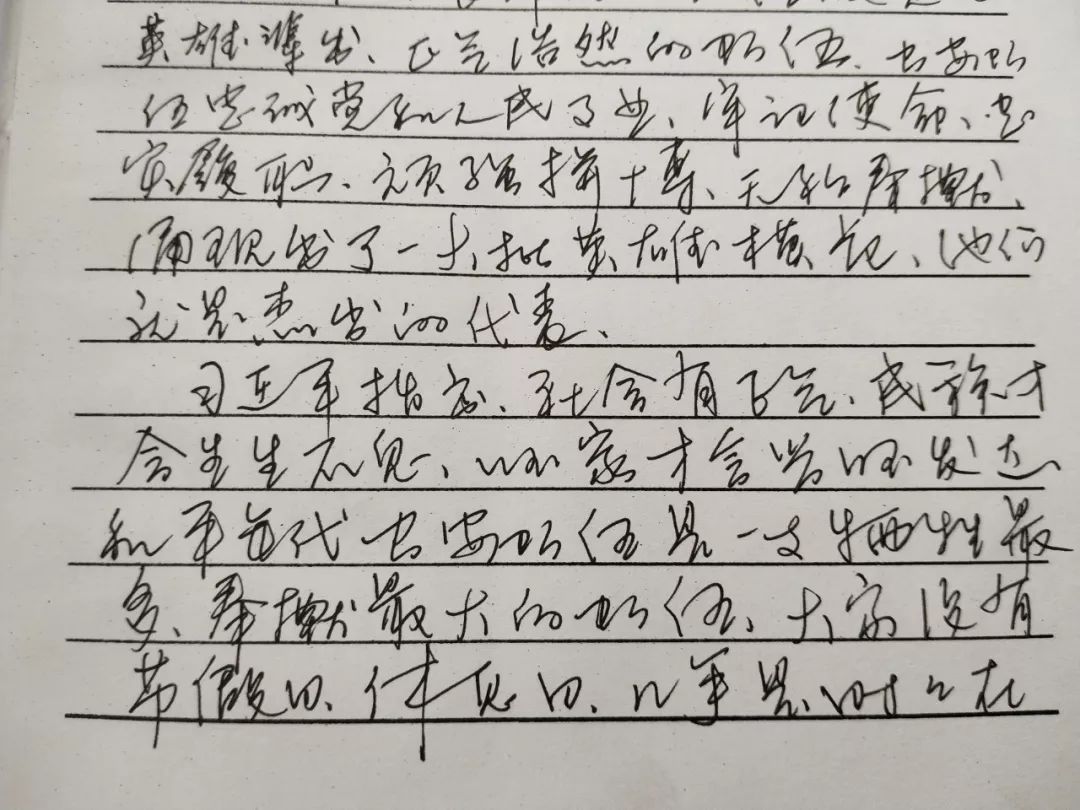 英雄辈出、正气浩然的队伍、公安队
伍忠诚党和人民事业、牢记使命、忠
实履职、顽强拼搏、无私奉献、
涌现出了一大批英雄模范、他们
就是杰出的代表、
习近平指出、社会有正气、民族才
会生生不息、国家才会兴旺发达
和平年代公安队伍是一支牺牲最
多、奉献最大的队伍、大家没有
节假日、休息日、几乎是时时在